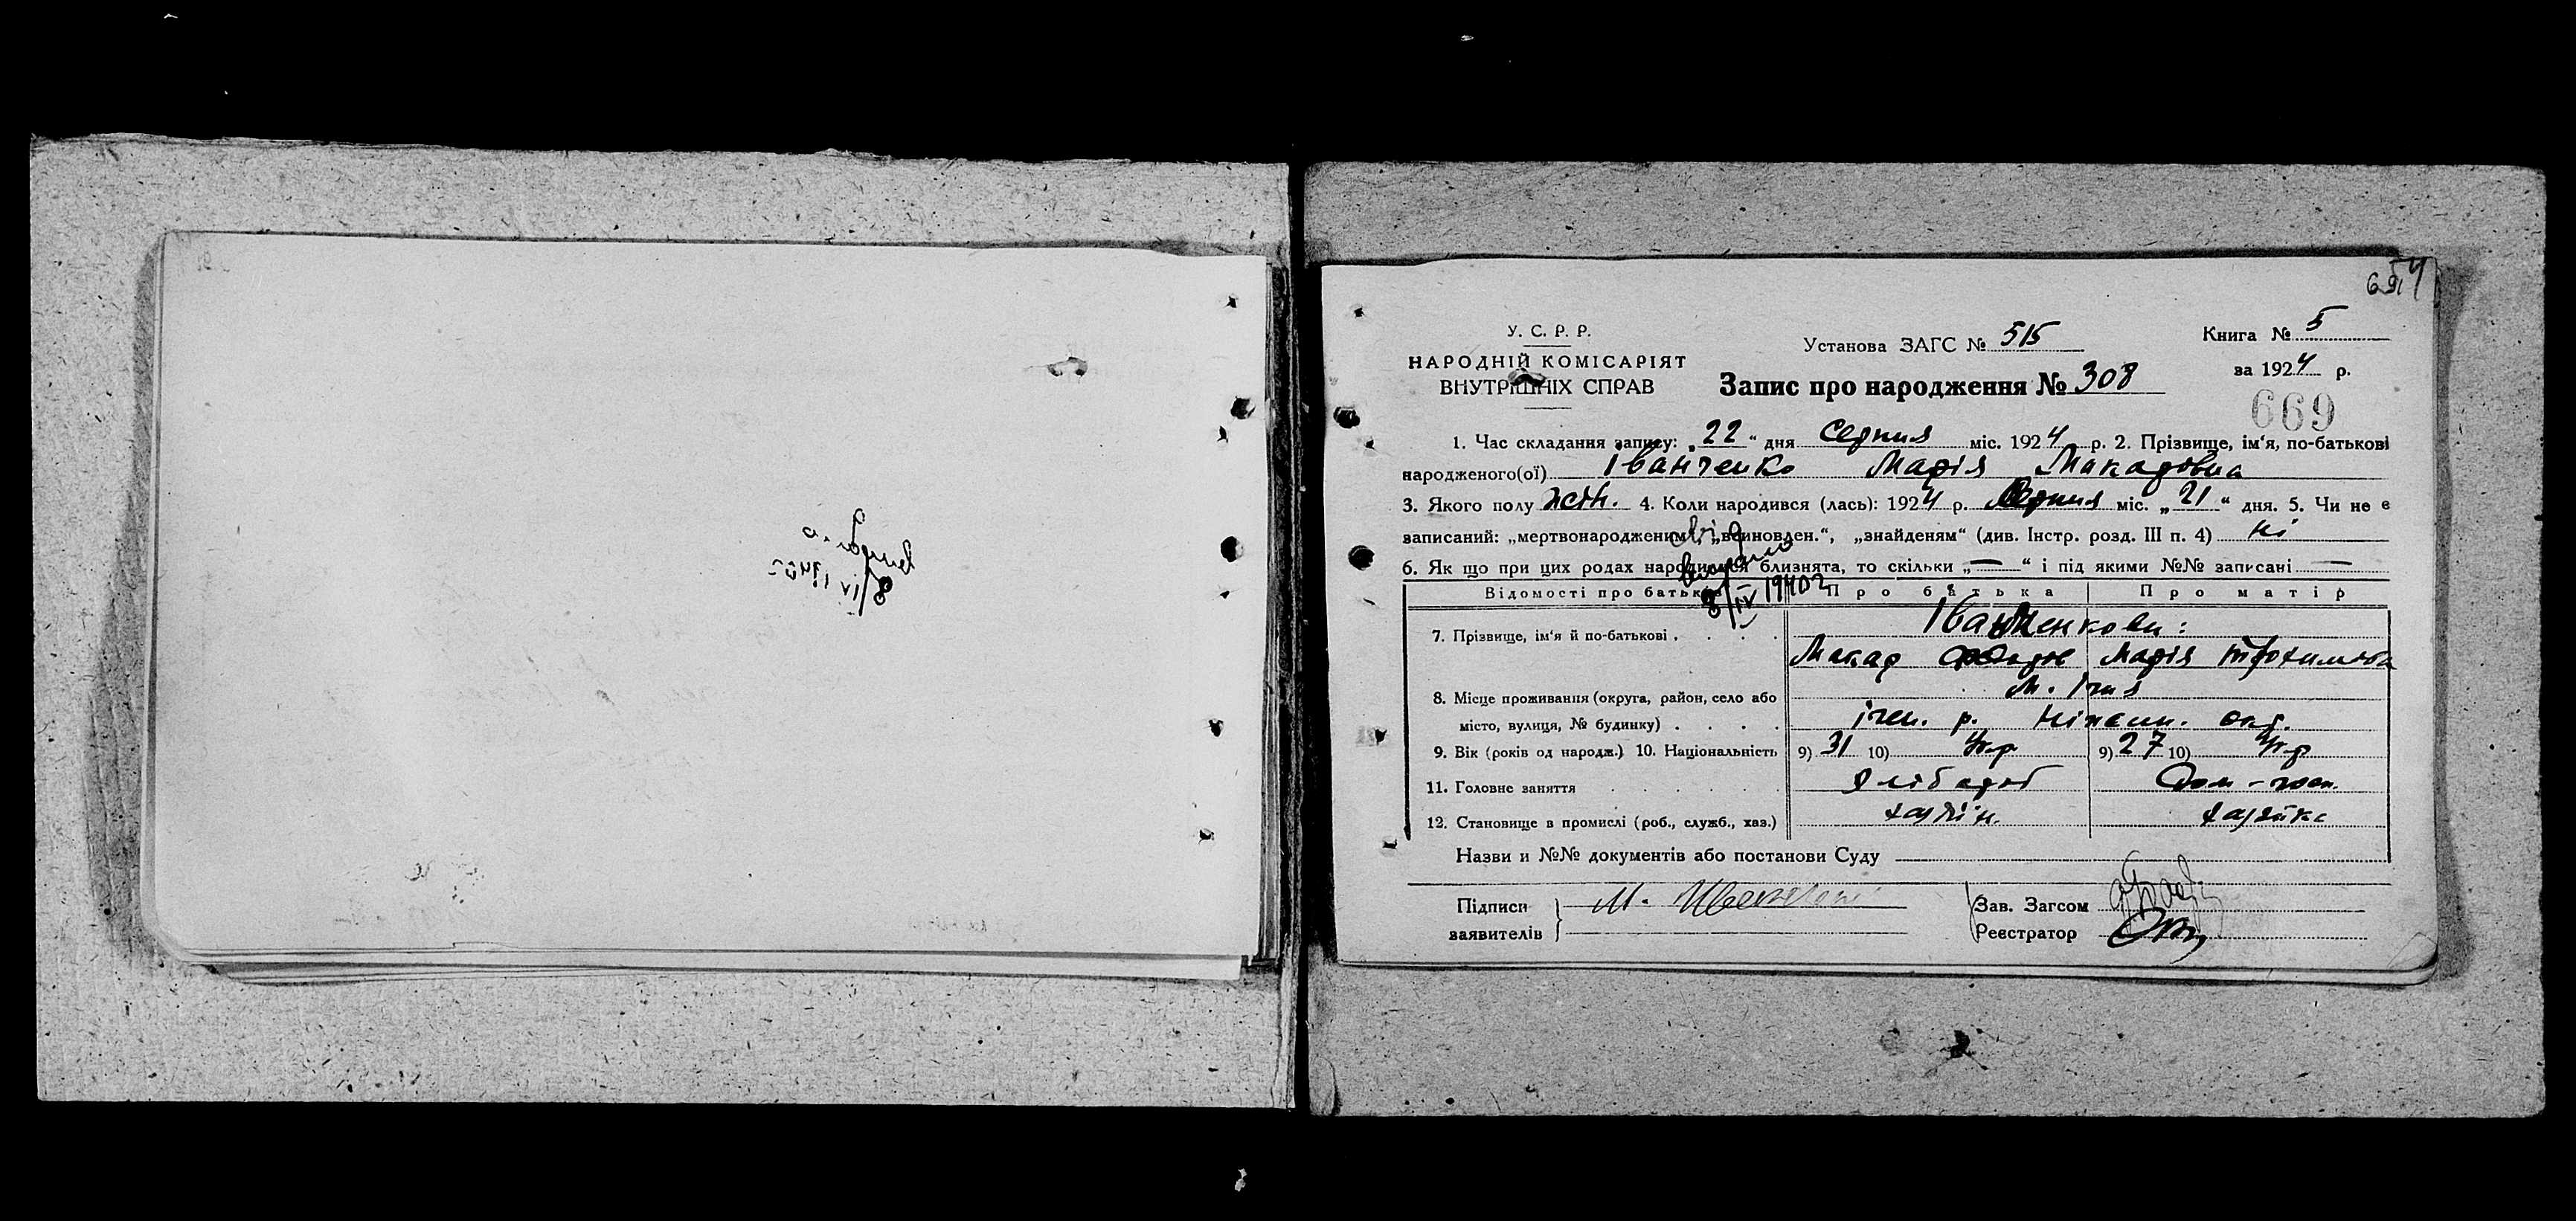 654
У. С. Р. Р.
НАРОДНІЙ КОМІСАРІЯТ
ВНУТРІШНІХ СПРАВ
Установа ЗАГС № 515
Запис про народження № 308
Книга № 5
за 1924 р.
669
1. Час складання запису: „22“ дня Серпня міс. 1924 р. 2. Прізвище, ім‘я, по-батькові
народженого(ої) Іванченко Марія Макаровна
3. Якого полу жін. 4. Коли народився (лась): 1924 р. Серпня міс. „21“ дня. 5. Чи не є
записаний: „мертвонародженим“, „всиновлен.“, „знайденям“ (див. Інстр. розд. III п. 4) ні
6. Як що при цих родах народилися близнята, то скільки „—“ і під якими №№ записані —
видано
8/IV 1940
Відомості про батьків Про батька Про матір
7. Прізвище, ім‘я й по-батькові . . . . Іванченкови:
Макар Марія Трохимовна
8. Місце проживання (округа, район, село або м. Ічня
місто, вулиця, № будинку) . . . . Ічен. р. Ніжин. окр.
9. Вік (років од народж.) 10. Національність 9) 31 10) Укр. 9) 27 10) Укр
11. Головне заняття . . . . . . Хлібороб Дом-госп.
12. Становище в промислі (роб., служб., хаз.) хазяїн. хазяйка
Назви и №№ документів або постанови Суду
Підписи
заявителів
М. Иванченко
Зав. Загсом
Реєстратор